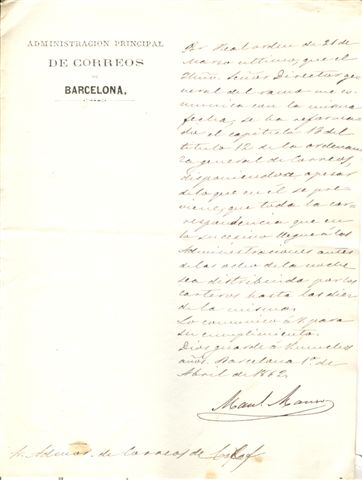 ADMINISTRACION PRINCIPAL
DE CORREOS
DE
BARCELONA.
Por Real orden de 21 de
Marzo ultimo, que el
Yltmo Señor Director gen
eral del ramo me co
munica con la misma
fecha, se ha reforma
do el capitulo 13 del
titulo 12 de la ordenan
za general de Correos,
disponiendose apesar
de lo que en él se pre
viene, que toda la cor
respondencia que en
lo sucesivo llegue á las
Administraciones antes
de las ocho de la noche
sea distribuida por los
carteros hasta las diez
de la misma.
Lo comunico á V. para
su cumplimiento.
Dios guarde á V. muchos
años. Barcelona 1º de
Abril de 1862.
Admor. de Correos de